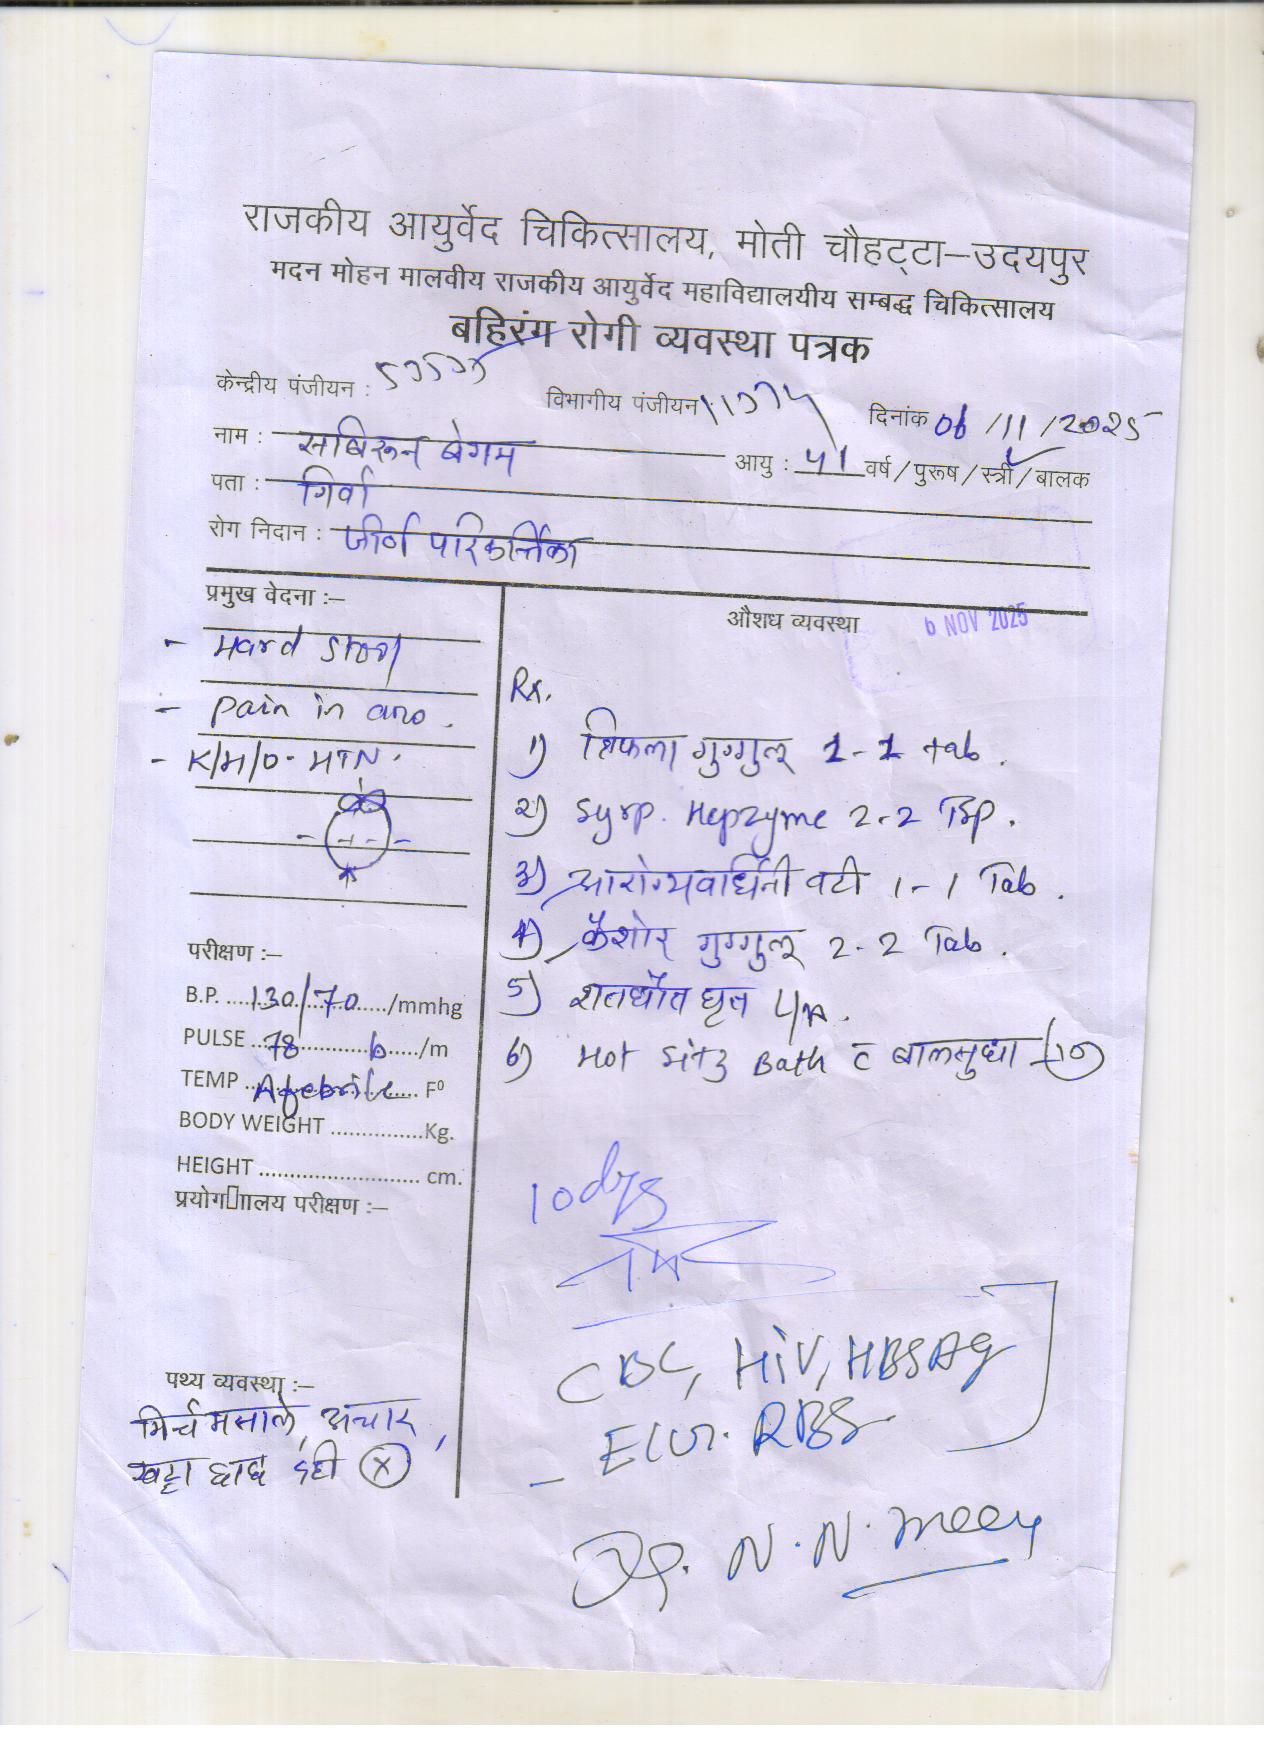 राजकीय आयुर्वेद चिकित्सालय, मोती चौहट्टा–उदयपुर
मदन मोहन मालवीय राजकीय आयुर्वेद महाविद्यालयीय सम्बद्ध चिकित्सालय
बहिरंग रोगी व्यवस्था पत्रक
केन्द्रीय पंजीयन : विभागीय पंजीयन : दिनांक 06/11/2025
नाम : साबिरून बेगम आयु : 51 वर्ष/पुरूष/स्त्री/बालक
पता : गिर्वा
रोग निदान : जीर्ण परिकर्त्तिका
प्रमुख वेदना :–
- Hard stool
- Pain in ano.
- K/M/O- HTN.
परीक्षण :–
B.P. 130/70 /mmhg
PULSE 78 b /m
TEMP Afebrile F⁰
BODY WEIGHT ...............Kg.
HEIGHT .......................... cm.
प्रयोग▯ाालय परीक्षण :–
पथ्य व्यवस्था :–
मिर्च मसाले, अचार,
खट्टा छाछ दही (x)
औशध व्यवस्था
6 NOV 2025
Rx.
1) त्रिफला गुग्गुलू 1-1 tab.
2) Syrp. Hepzyme 2-2 Tsp.
3) आरोग्यवर्धिनी वटी 1-1 Tab.
4) कैशोर गुग्गुलू 2-2 Tab.
5) शतधौत घृत L/A.
6) Hot Sitz Bath c̄ बालसुधा
10 dys
CBC, HIV, HBSAg
- ECG. RBS
Dr. N. N. Meena